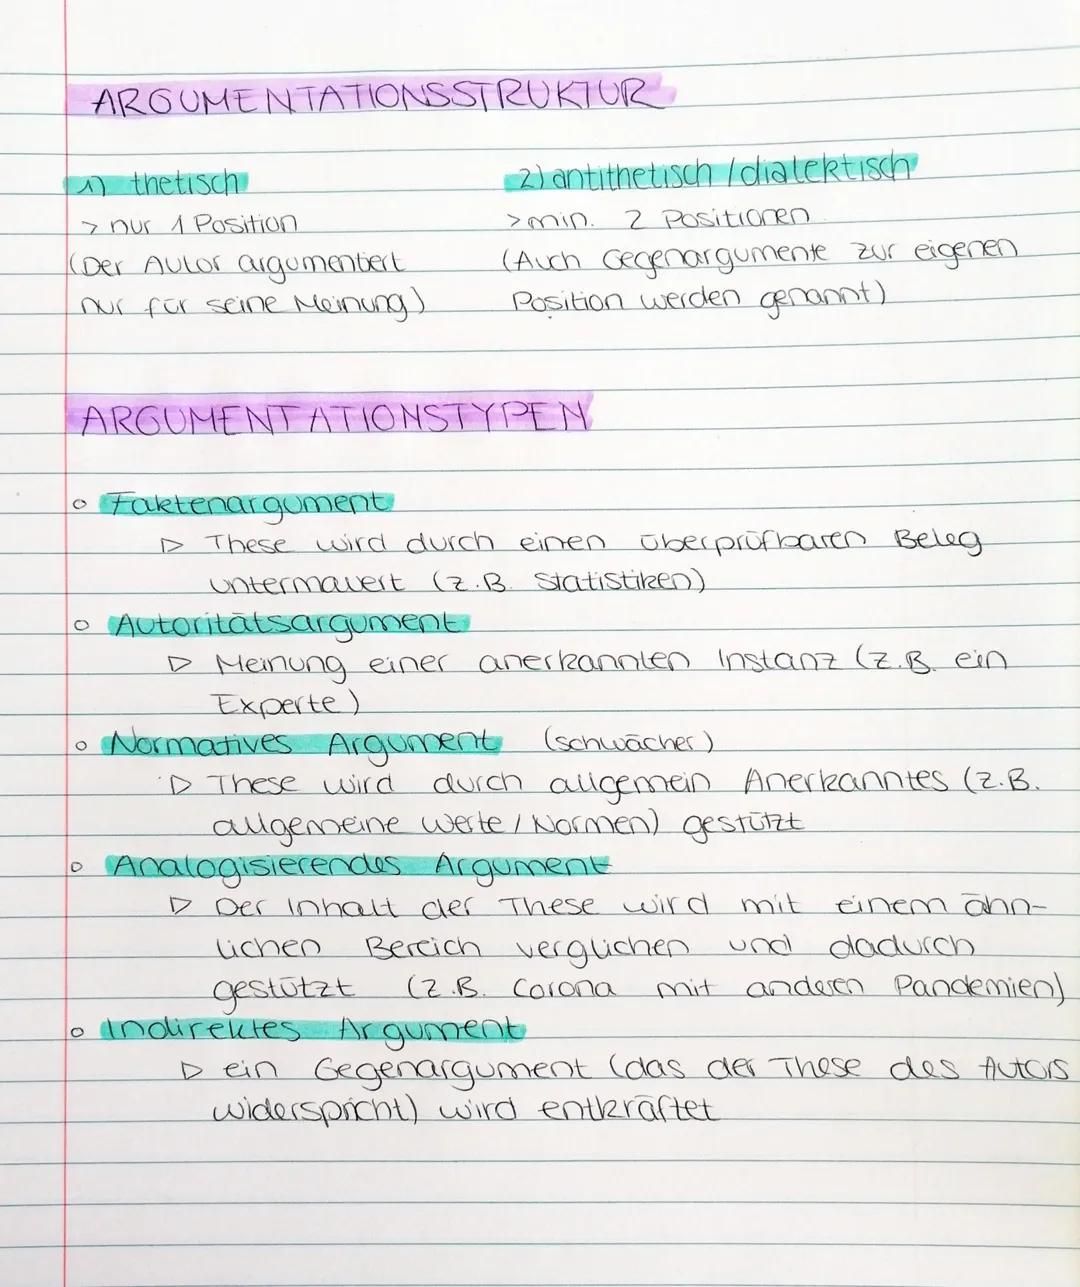 ARGUMENTATIONSSTRUKTUR
1) thetisch
> nur 1 Position
(Der Autor argumentiert
nur für seine Meinung)
2) antithetisch / dialektisch
> min. 2 Positionen
(Auch Gegenargumente zur eigenen
Position werden genannt)
ARGUMENTATIONSTYPEN
○ Faktenargument
▷ These wird durch einen überprüfbaren Beleg
untermauert (z.B. Statistiken)
○ Autoritätsargument
▷ Meinung einer anerkannten Instanz (z.B. ein
Experte)
○ Normatives Argument (schwächer)
▷ These wird durch allgemein Anerkanntes (z.B.
allgemeine Werte / Normen) gestützt
○ Analogisierendes Argument
▷ Der Inhalt der These wird mit einem ähn-
lichen Bereich verglichen und dadurch
gestützt (z.B. Corona mit anderen Pandemien)
○ Indirektes Argument
▷ ein Gegenargument (das der These des Autors
widerspricht) wird entkräftet